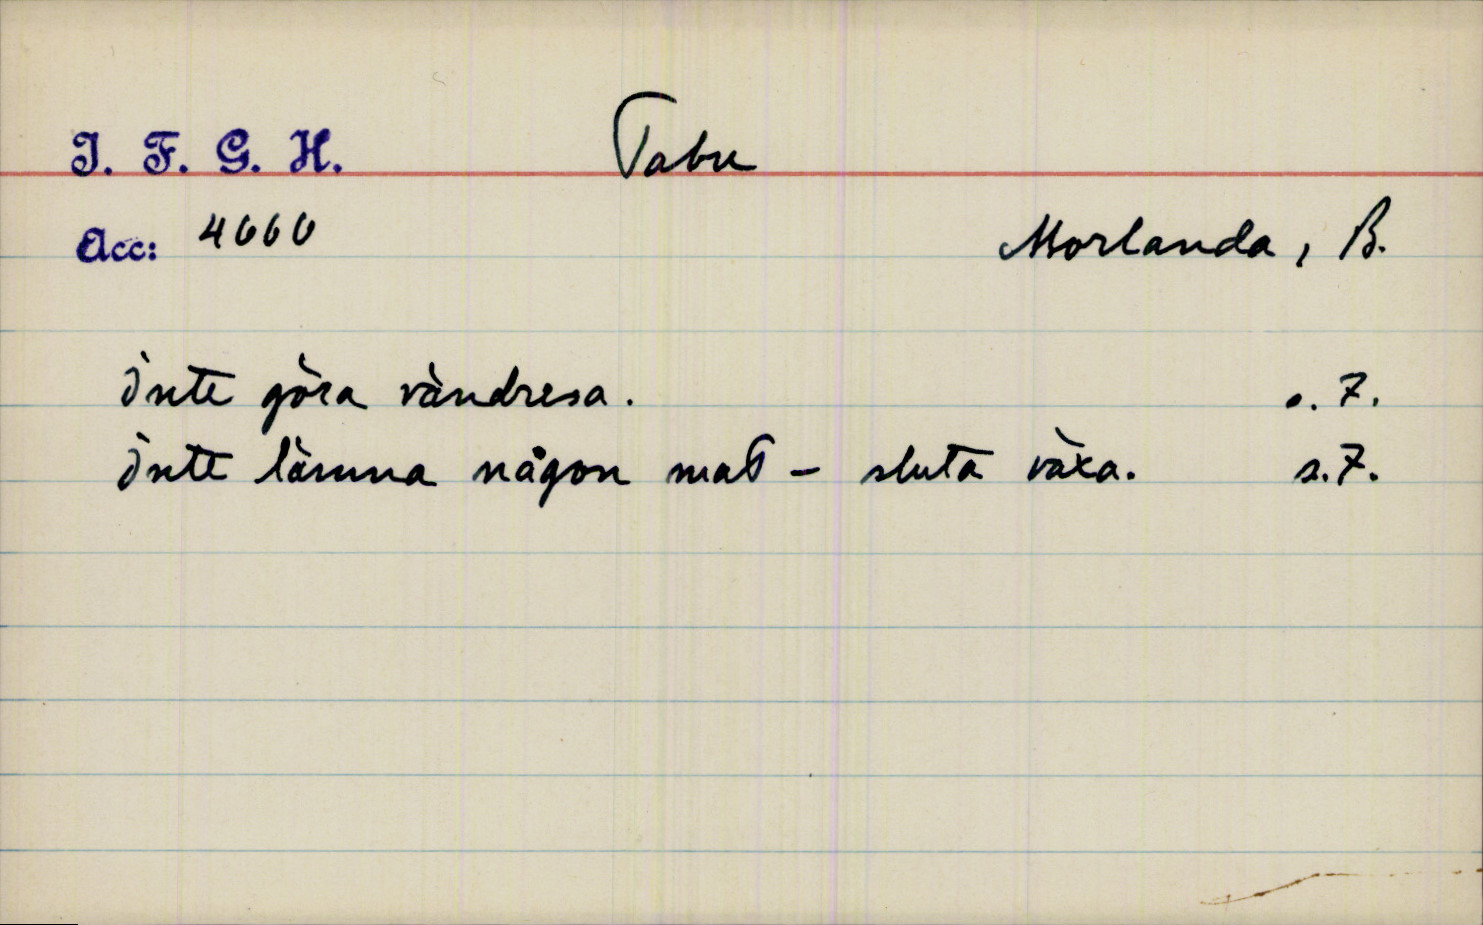 I. F. G. H. Tabu
Acc: 4660 Morlanda, B.
Inte göra vändresa. s. 7.
Inte lämna någon mat – sluta växa. s. 7.